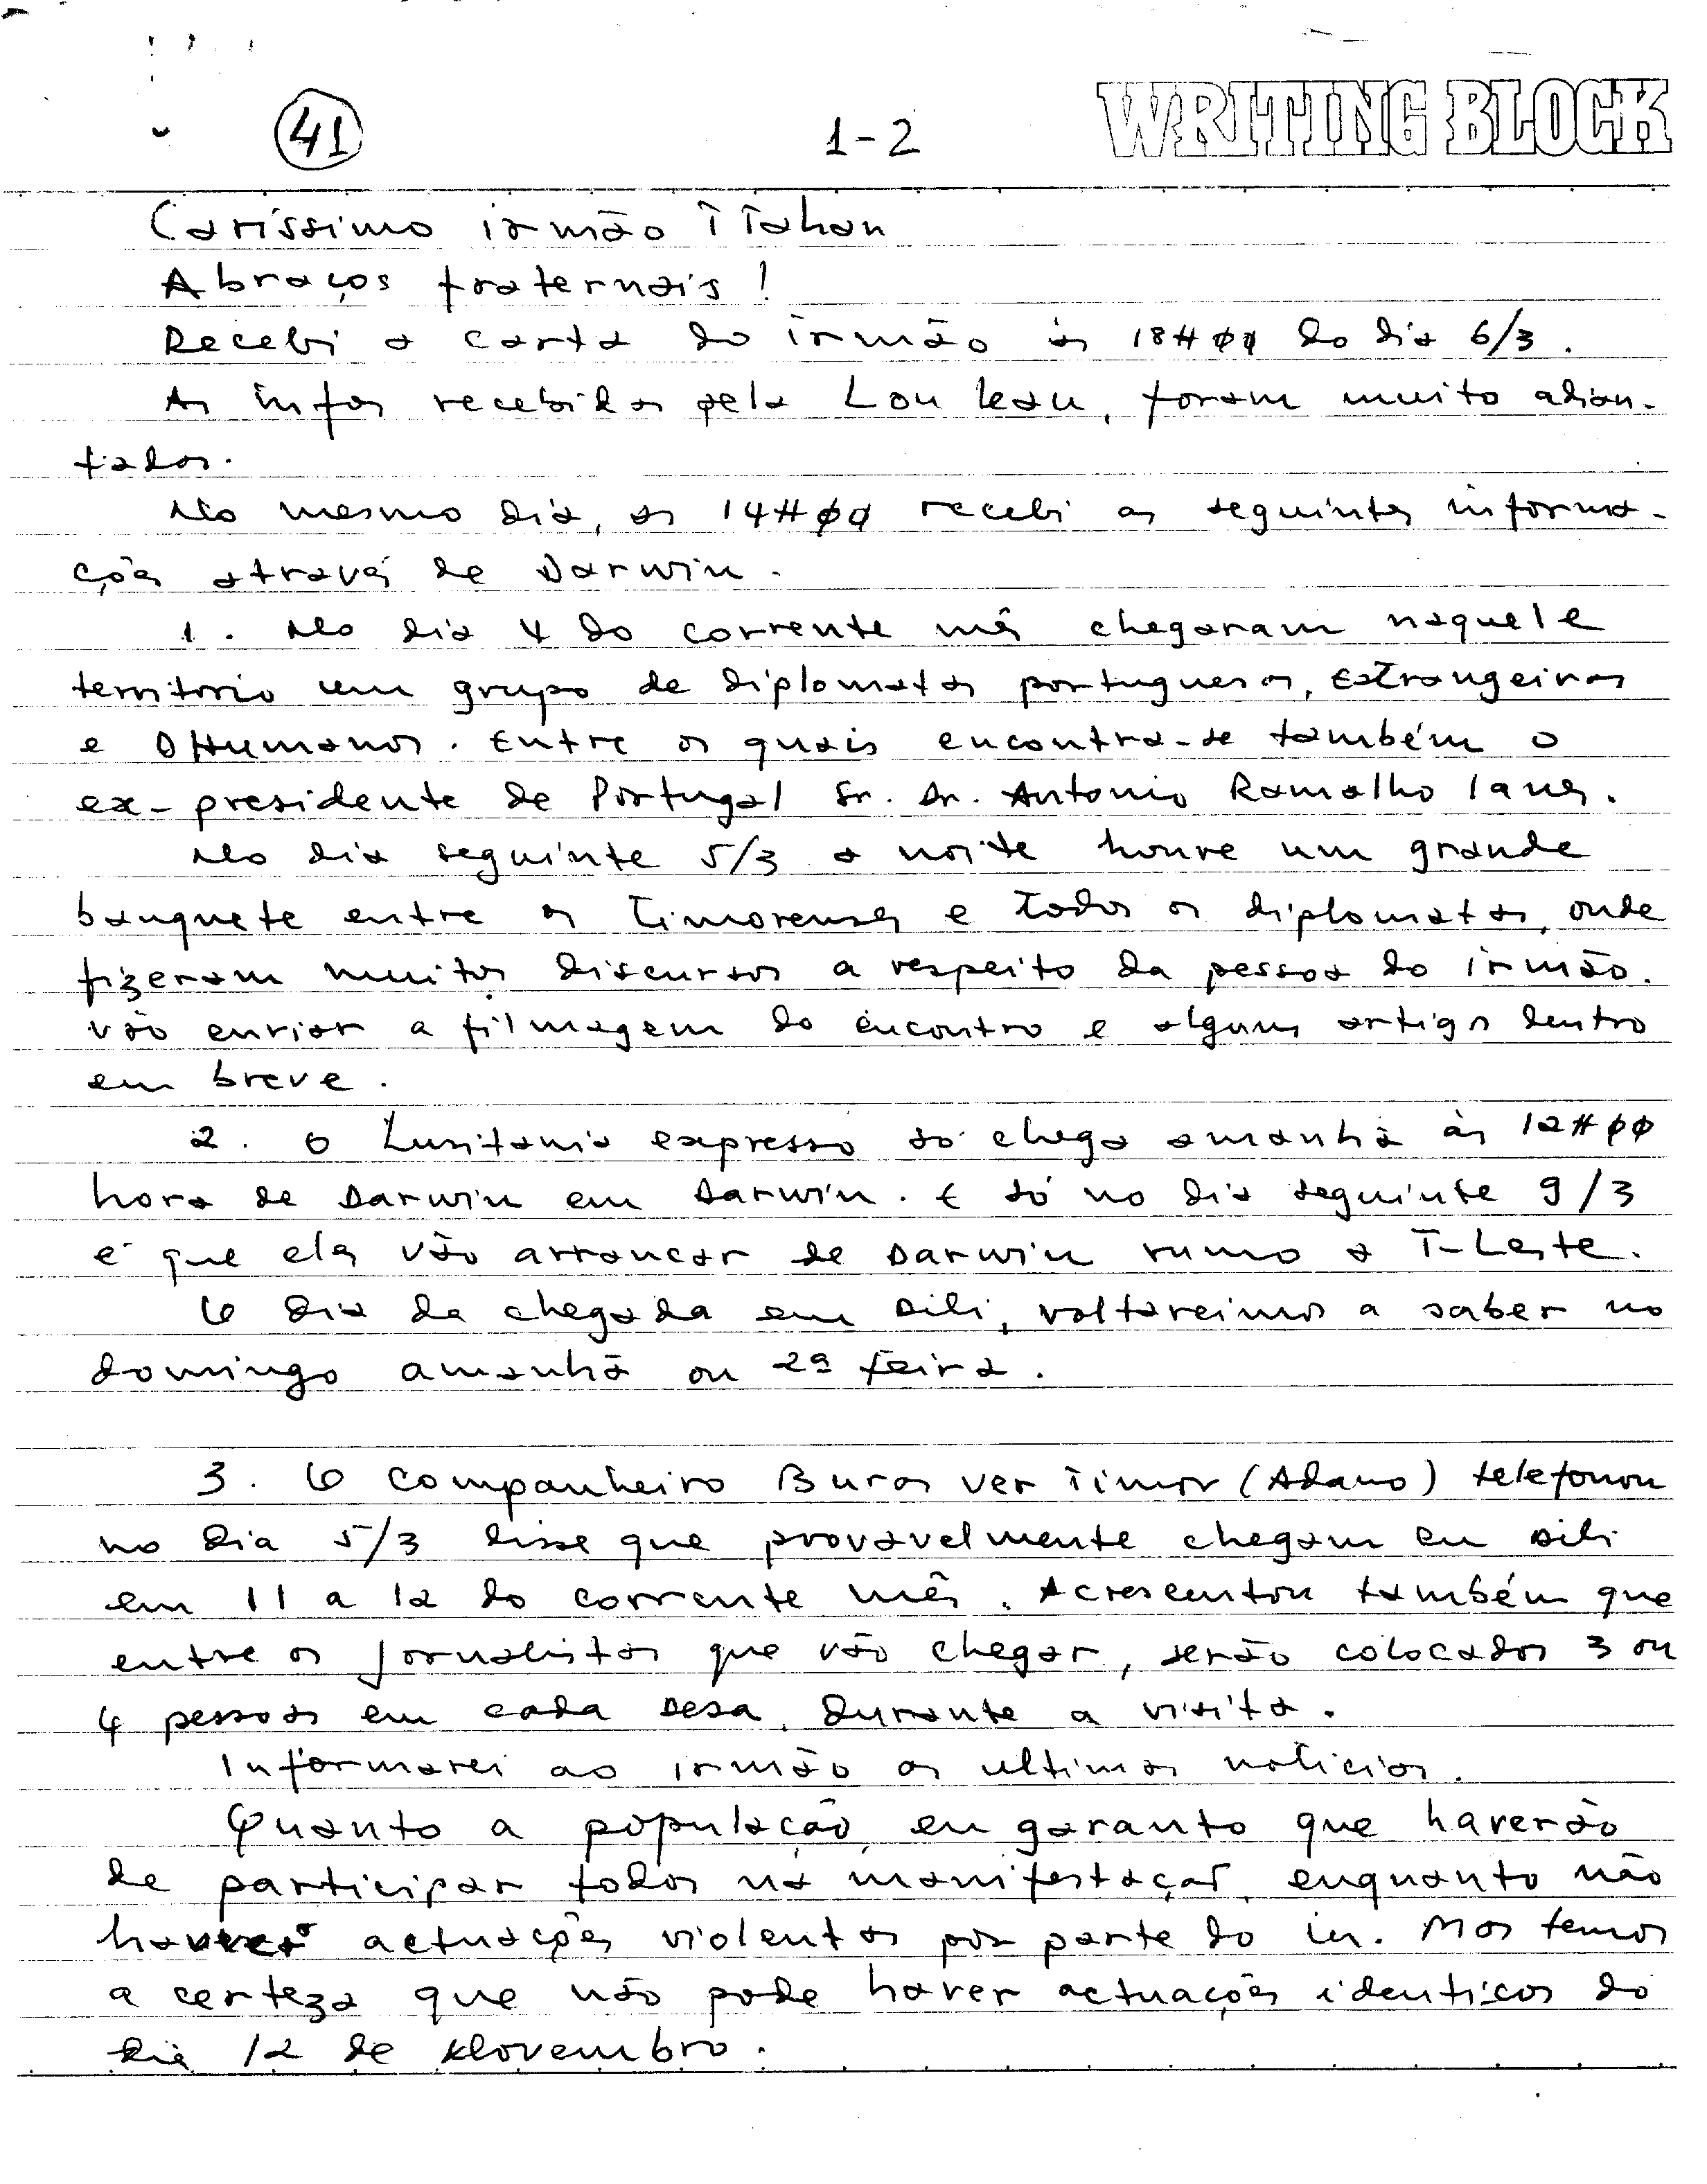 41
1-2
WRITING BLOCK
Caríssimo irmão
Abraços fraternais!
Recebi a carta do irmão às 18H00 do dia 6/3.
As infos recebidas pela Lou leau, foram muito adian-
tados.
No mesmo dia, as 14H00 recebi as seguintes informa-
ções através de Darwin.
1. No dia 4 do corrente mês chegaram naquele
territorio um grupo de diplomatas portugueses, Estrangeiros
e DHumanos. Entre os quais encontra-se também o
ex-presidente de Portugal Sr. Dr. Antonio Ramalho Ianes.
No dia seguinte 5/3 a noite houve um grande
banquete entre os Timorenses e todos os diplomatas, onde
fizeram muitos discursos a respeito da pessoa do irmão.
vão enviar a filmagem do encontro e alguns artigos dentro
em breve.
2. O Lusitania expresso só chega amanhã às 12H00
hora de Darwin em Darwin. E só no dia seguinte 9/3
é que eles vão arrancar de Darwin rumo a T-Leste.
O dia da chegada em Dili, voltareimos a saber no
domingo amanhã ou 2ª feira.
3. O companheiro Buras ver Timor (Adano) telefonou
no dia 5/3 disse que provavelmente chegam em Dili
em 11 a 12 do corrente mês. Acrescentou também que
entre os jornalistas que vão chegar, serão colocados 3 ou
4 pessoas em cada Desa, durante a visita.
Informarei ao irmão as ultimas noticias.
Quanto a população, eu garanto que haverão
de participar todos na manifestação, enquanto não
haverá actuações violentas por parte do in. Mas temos
a certeza que não pode haver actuações identicas do
dia 12 de Novembro.